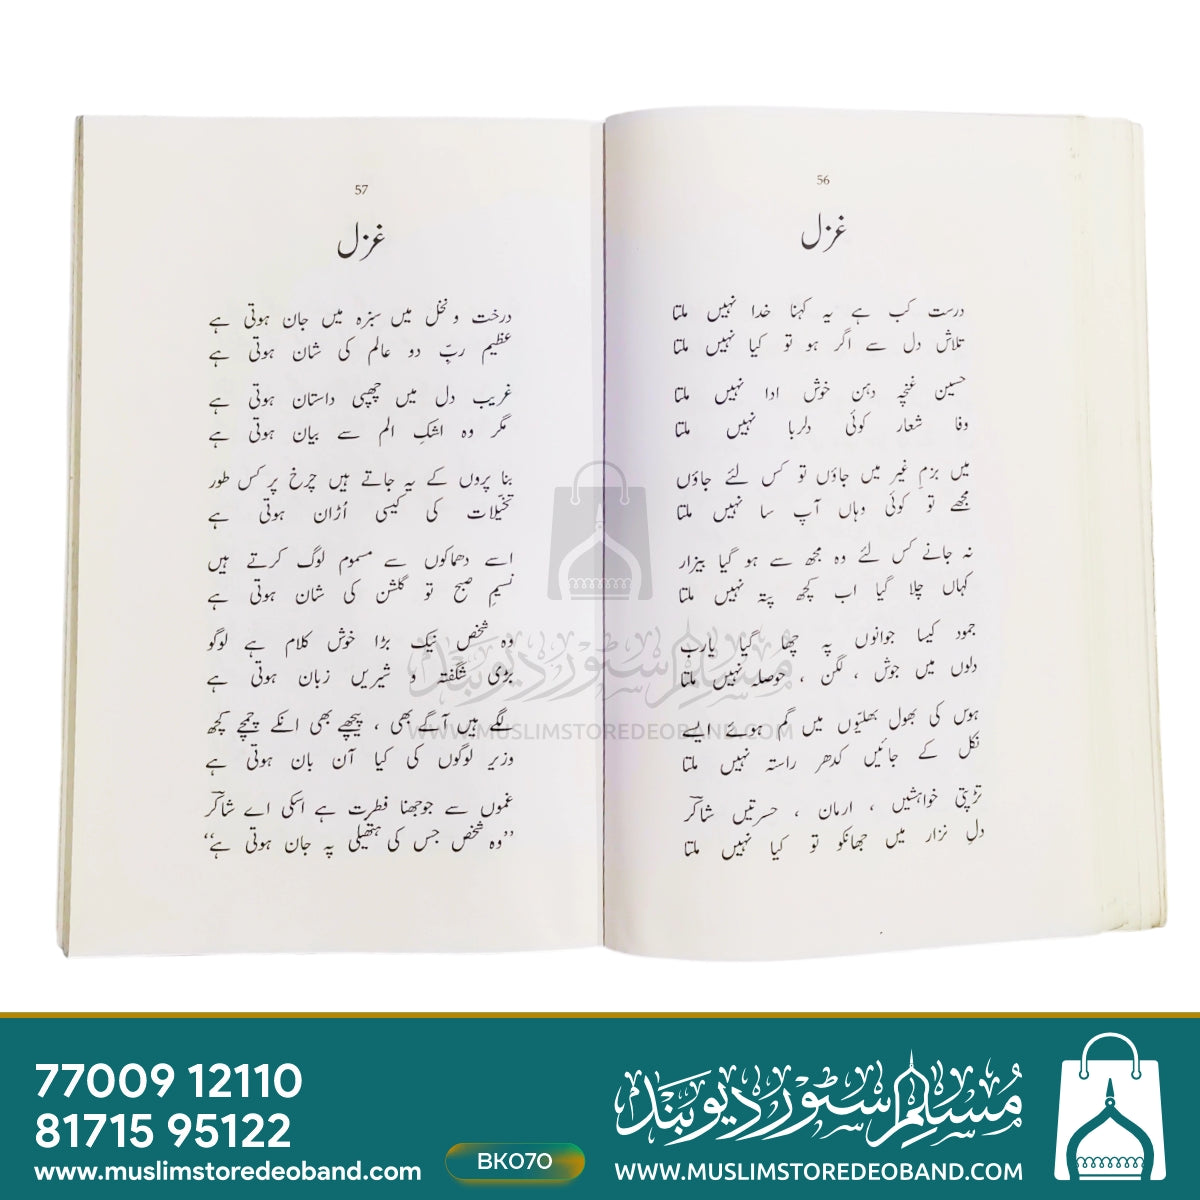 56
غزل
درست کب ہے یہ کہنا خدا نہیں ملتا
تلاش دل سے اگر ہو تو کیا نہیں ملتا
حسین غنچہ دہن خوش ادا نہیں ملتا
وفا شعار کوئی دلربا نہیں ملتا
میں بزمِ غیر میں جاؤں تو کس لئے جاؤں
مجھے تو کوئی وہاں آپ سا نہیں ملتا
نہ جانے کس لئے وہ مجھ سے ہو گیا بیزار
کہاں چلا گیا اب کچھ پتہ نہیں ملتا
جمود کیسا جوانوں پہ چھا گیا یارب
دلوں میں جوش ، لگن ، حوصلہ نہیں ملتا
ہوس کی بھول بھلیّوں میں گم ہوئے ایسے
نکل کے جائیں کدھر راستہ نہیں ملتا
تڑپتی خواہشیں ، ارمان ، حسرتیں شاکرؔ
دلِ نزار میں جھانکو تو کیا نہیں ملتا
57
غزل
درخت و نخل میں سبزہ میں جان ہوتی ہے
عظیم ربِّ دو عالم کی شان ہوتی ہے
غریب دل میں چھپی داستان ہوتی ہے
مگر وہ اشکِ الم سے بیان ہوتی ہے
بنا پروں کے یہ جاتے ہیں چرخ پر کس طور
تخیّلات کی کیسی اُڑان ہوتی ہے
اسے دھماکوں سے مسموم لوگ کرتے ہیں
نسیمِ صبح تو گلشن کی شان ہوتی ہے
وہ شخص نیک بڑا خوش کلام ہے لوگو
بڑی شگفتہ و شیریں زبان ہوتی ہے
لگے ہیں آگے بھی ، پیچھے بھی انکے چمچے کچھ
وزیر لوگوں کی کیا آن بان ہوتی ہے
غموں سے جوجھنا فطرت ہے اسکی اے شاکرؔ
”وہ شخص جس کی ہتھیلی پہ جان ہوتی ہے“
مسلم سٹور دیوبند
WWW.MUSLIMSTOREDEOBAND.COM
77009 12110
81715 95122
www.muslimstoredeoband.com
BK070
مسلم سٹور دیوبند
WWW.MUSLIMSTOREDEOBAND.COM